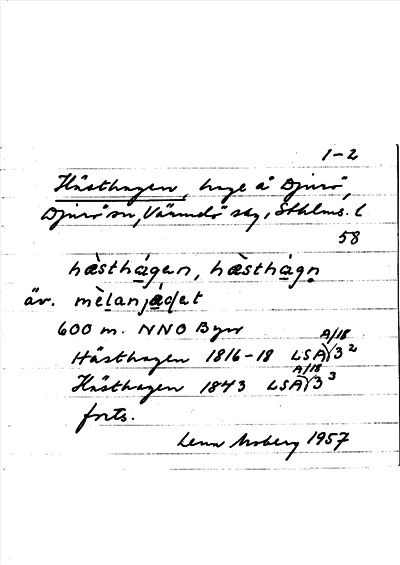 1-2
Hästhagen, hage å Djurö,
Djurö sn, Värmdö skg, Sthlms. l
58
hæ̀sthágan, hæ̀sthágn̥
äv. mèlanjǽɖet
600 m. NNO Byn
A/18
Hästhagen 1816-18 LSA Y3²
A/18
Hästhagen 1843 LSA Y3³
forts.
Lenn Moberg 1957